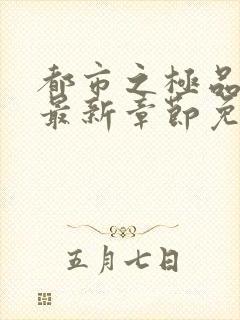 都市之極品
最新章節免
五月七日